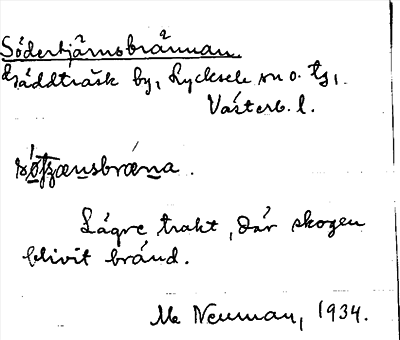 Södertjärnsbrännan
Gäddträsk by, Lycksele sn o. tg,
Västerb. l.
Lägre trakt, där skogen
blivit bränd.
Neuman, 1934.